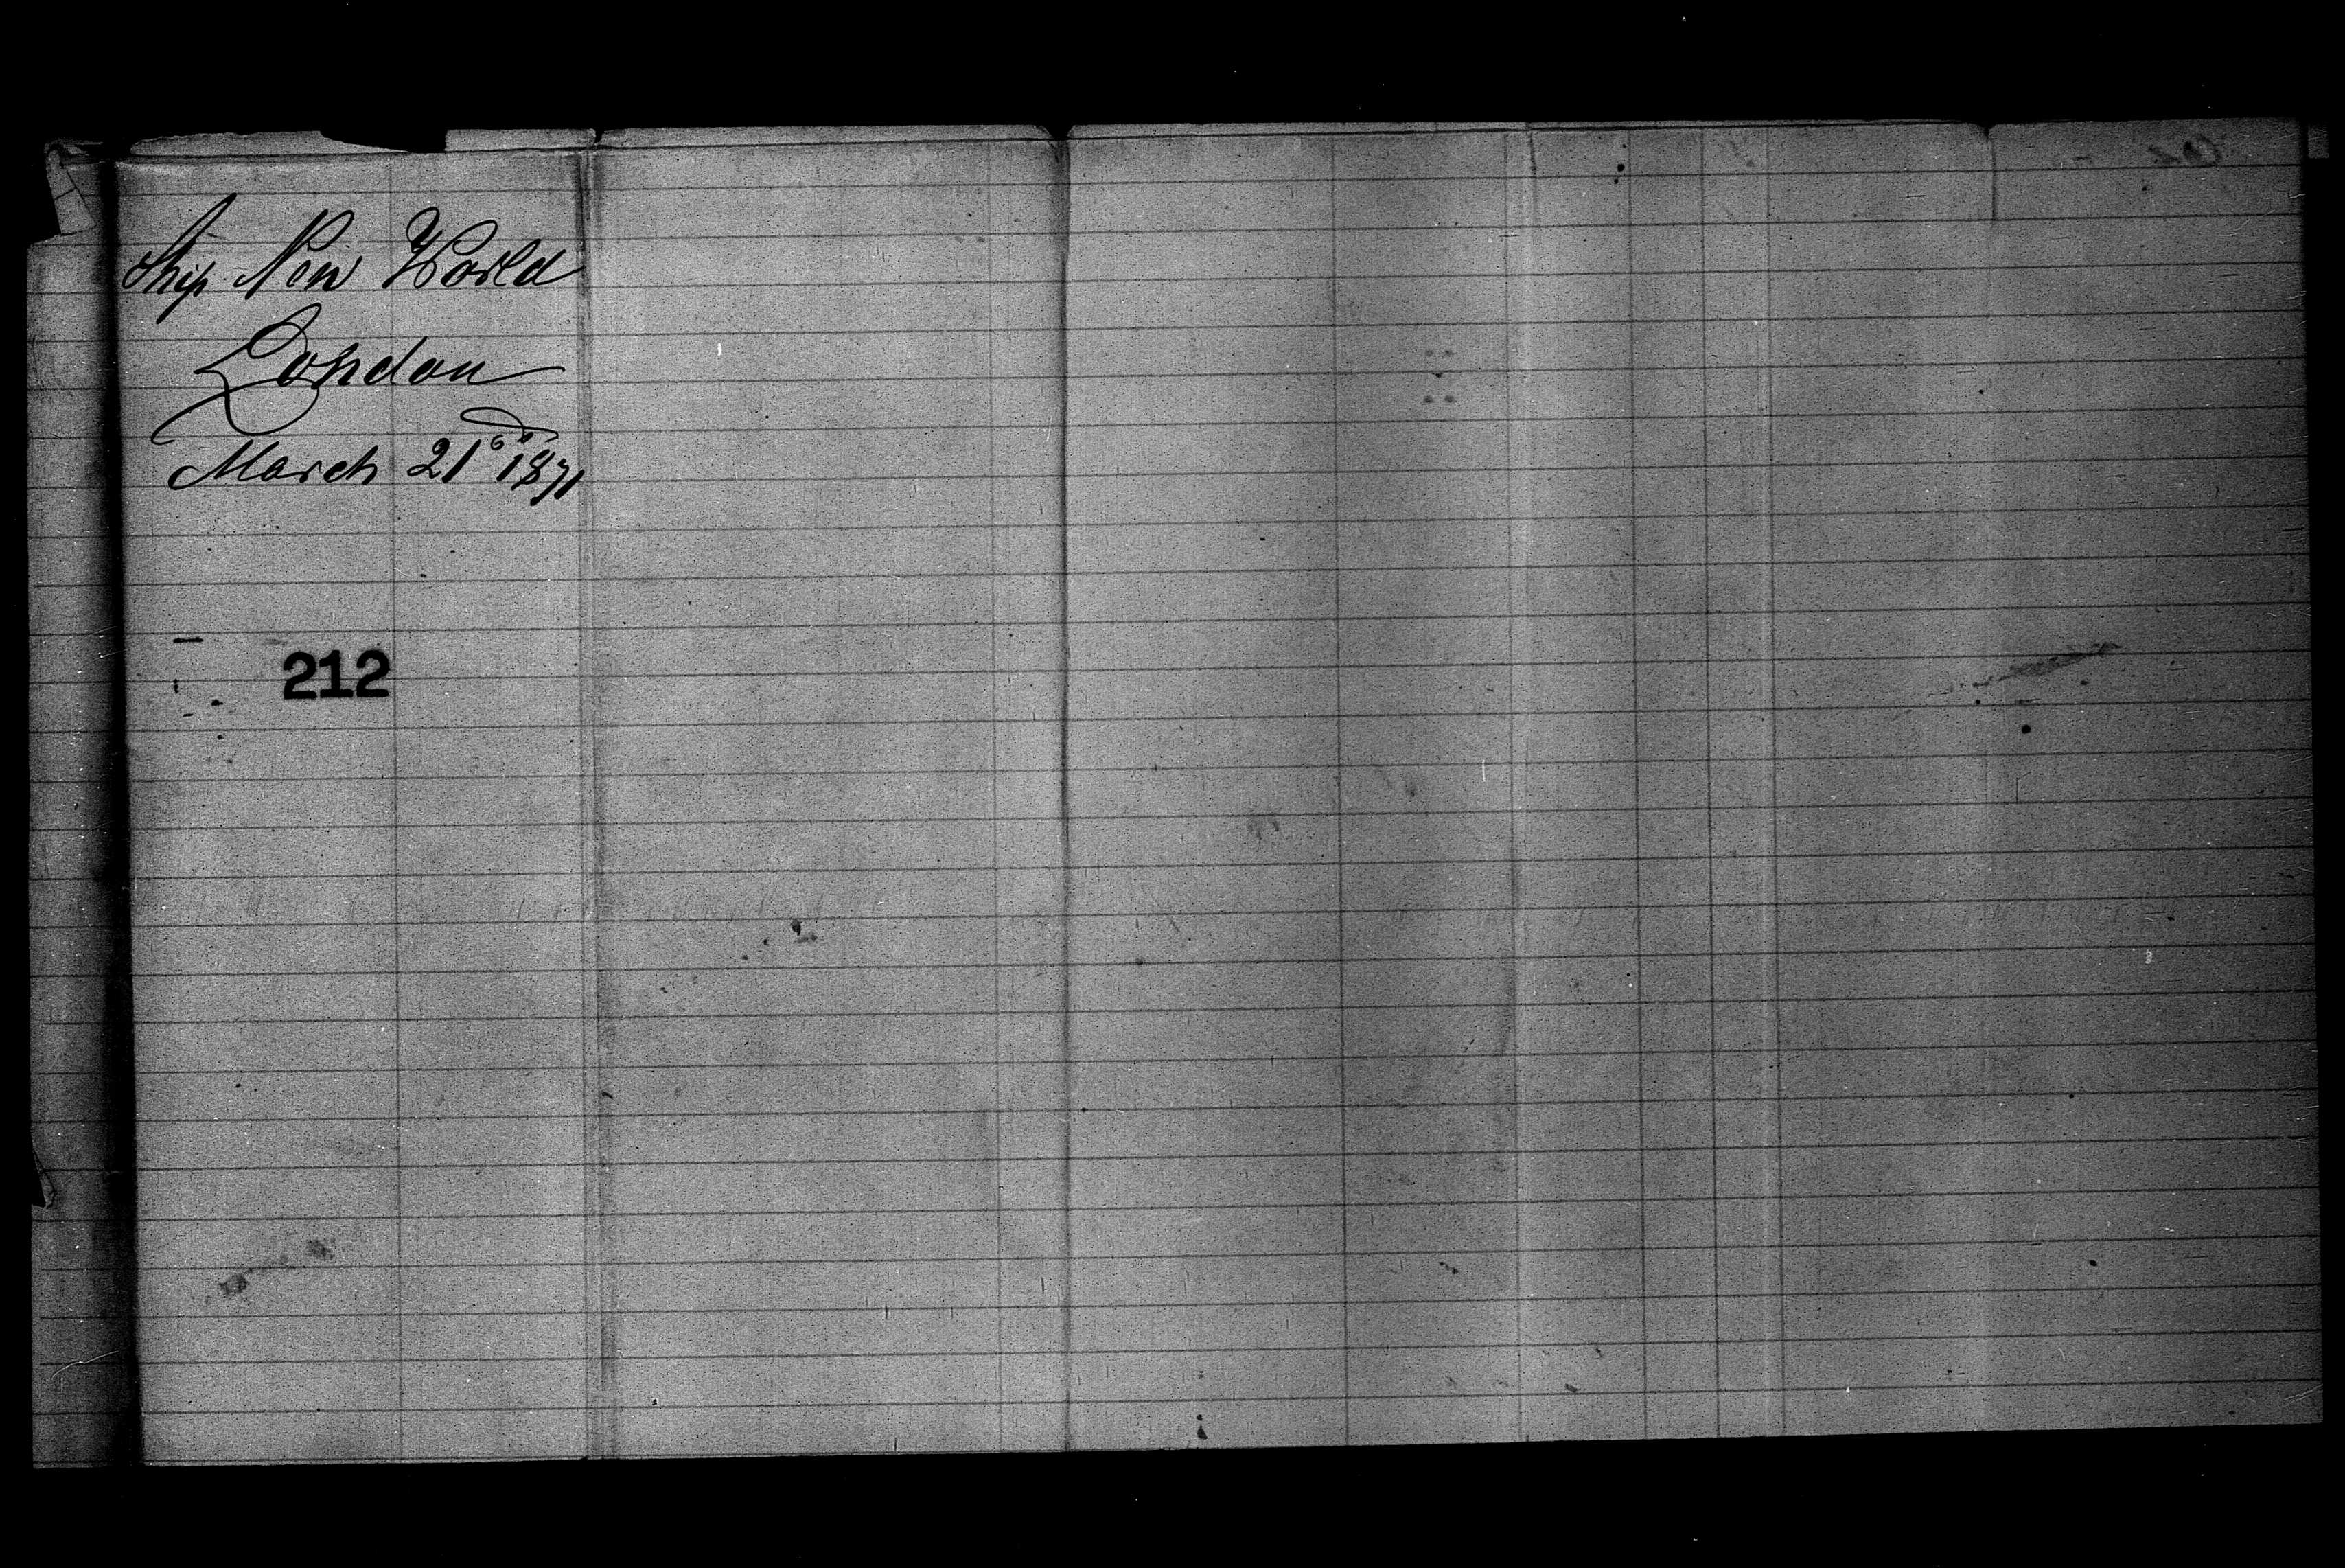 Ship New World
London
March 21st 1871
212